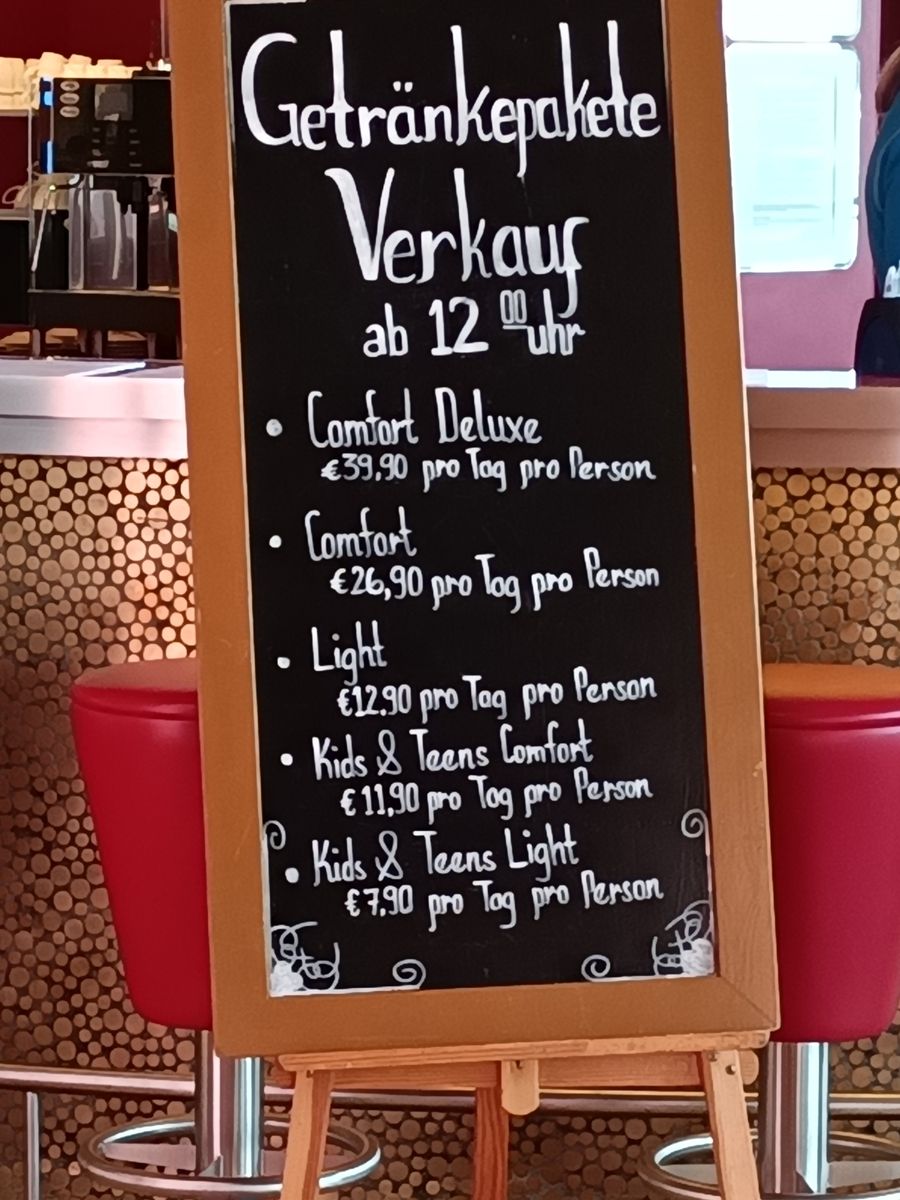 Getränkepakete
Verkauf
ab 12 00 uhr
• Comfort Deluxe
€39,90 pro Tag pro Person
• Comfort
€26,90 pro Tag pro Person
• Light
€12.90 pro Tag pro Person
• Kids & Teens Comfort
€11,90 pro Tag pro Person
• Kids & Teens Light
€7.90 pro Tag pro Person